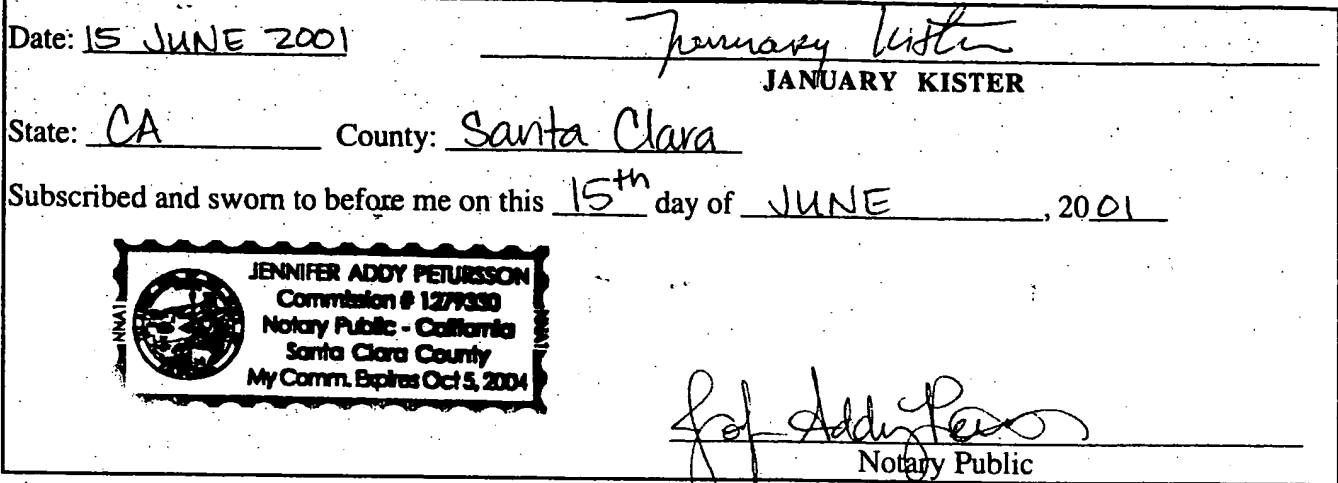 Date: 15 JUNE 2001 January Kister
JANUARY KISTER
State: CA County: Santa Clara
Subscribed and sworn to before me on this 15th day of JUNE, 2001
JENNIFER ADDY PETURSSON
Commission # 1279330
Notary Public - California
Santa Clara County
My Comm. Expires Oct 5, 2004
Addy
Notary Public